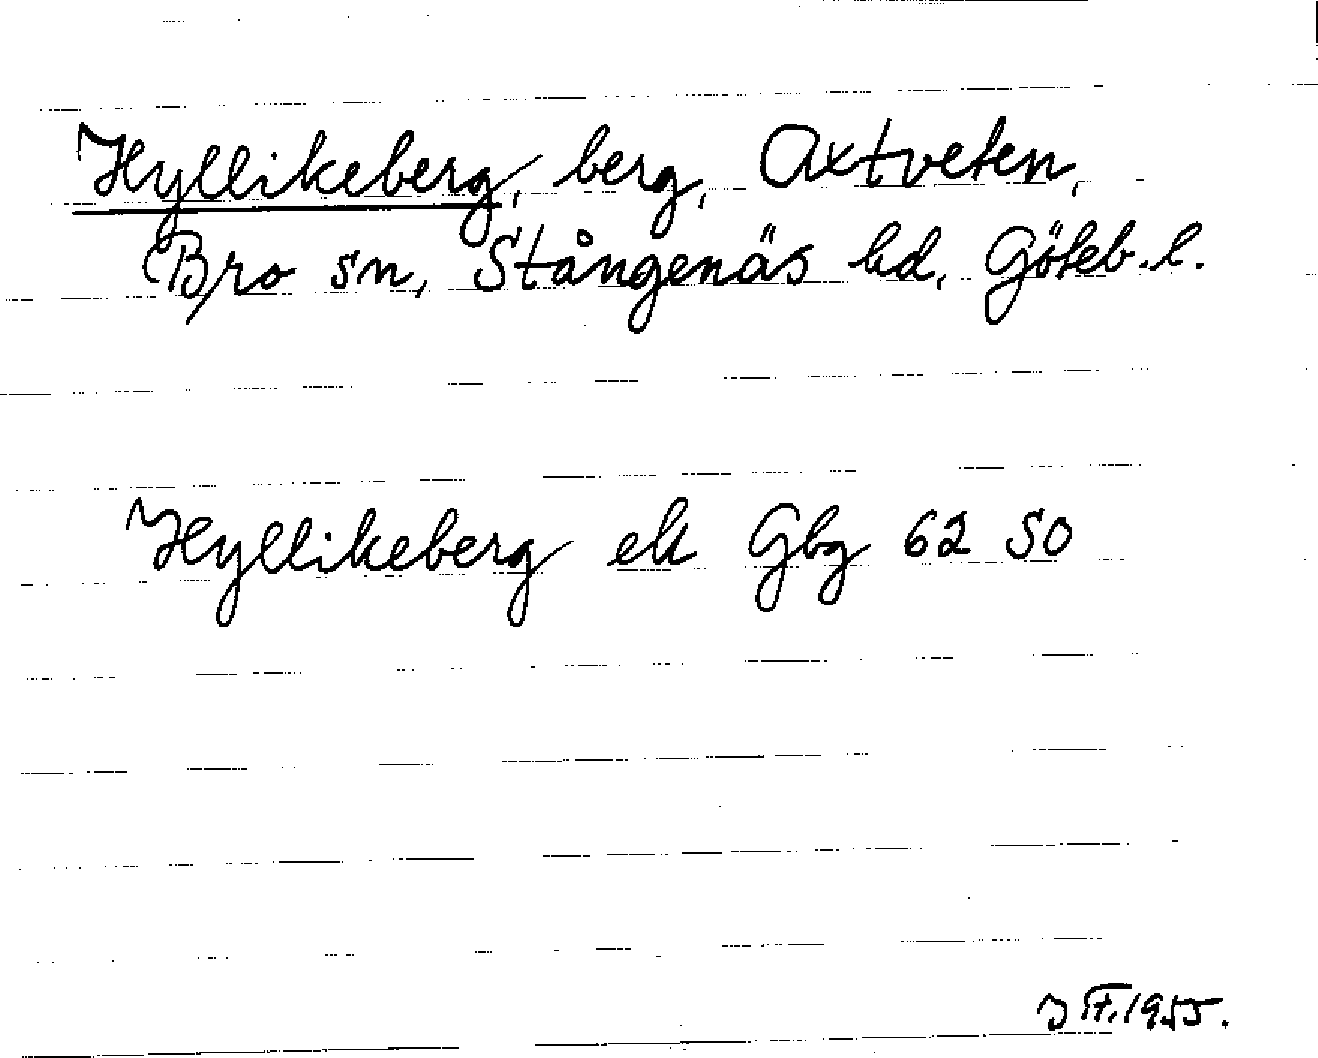 Hyllikeberg, berg, Axtveten,
Bro sn, Stångenäs hd, Göteb. l.
Hyllikeberg ek Gbg 62 SO
1955.